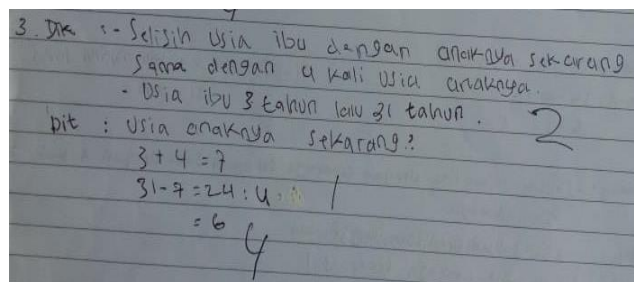 3. Dik : - Selisih usia ibu dengan anaknya sekarang
sama dengan 4 kali usia anaknya.
- Usia ibu 3 tahun lalu 31 tahun.
2
Dit : Usia anaknya sekarang?
3 + 4 = 7
31 - 7 = 24 : 4
1
= 6
4